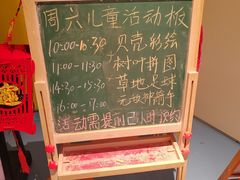 周六儿童活动板
10:00-16:30 贝壳彩绘
11:00-11:30 树叶拼图
14:30-15:30 草地足球
16:00-17:00
活动需提前